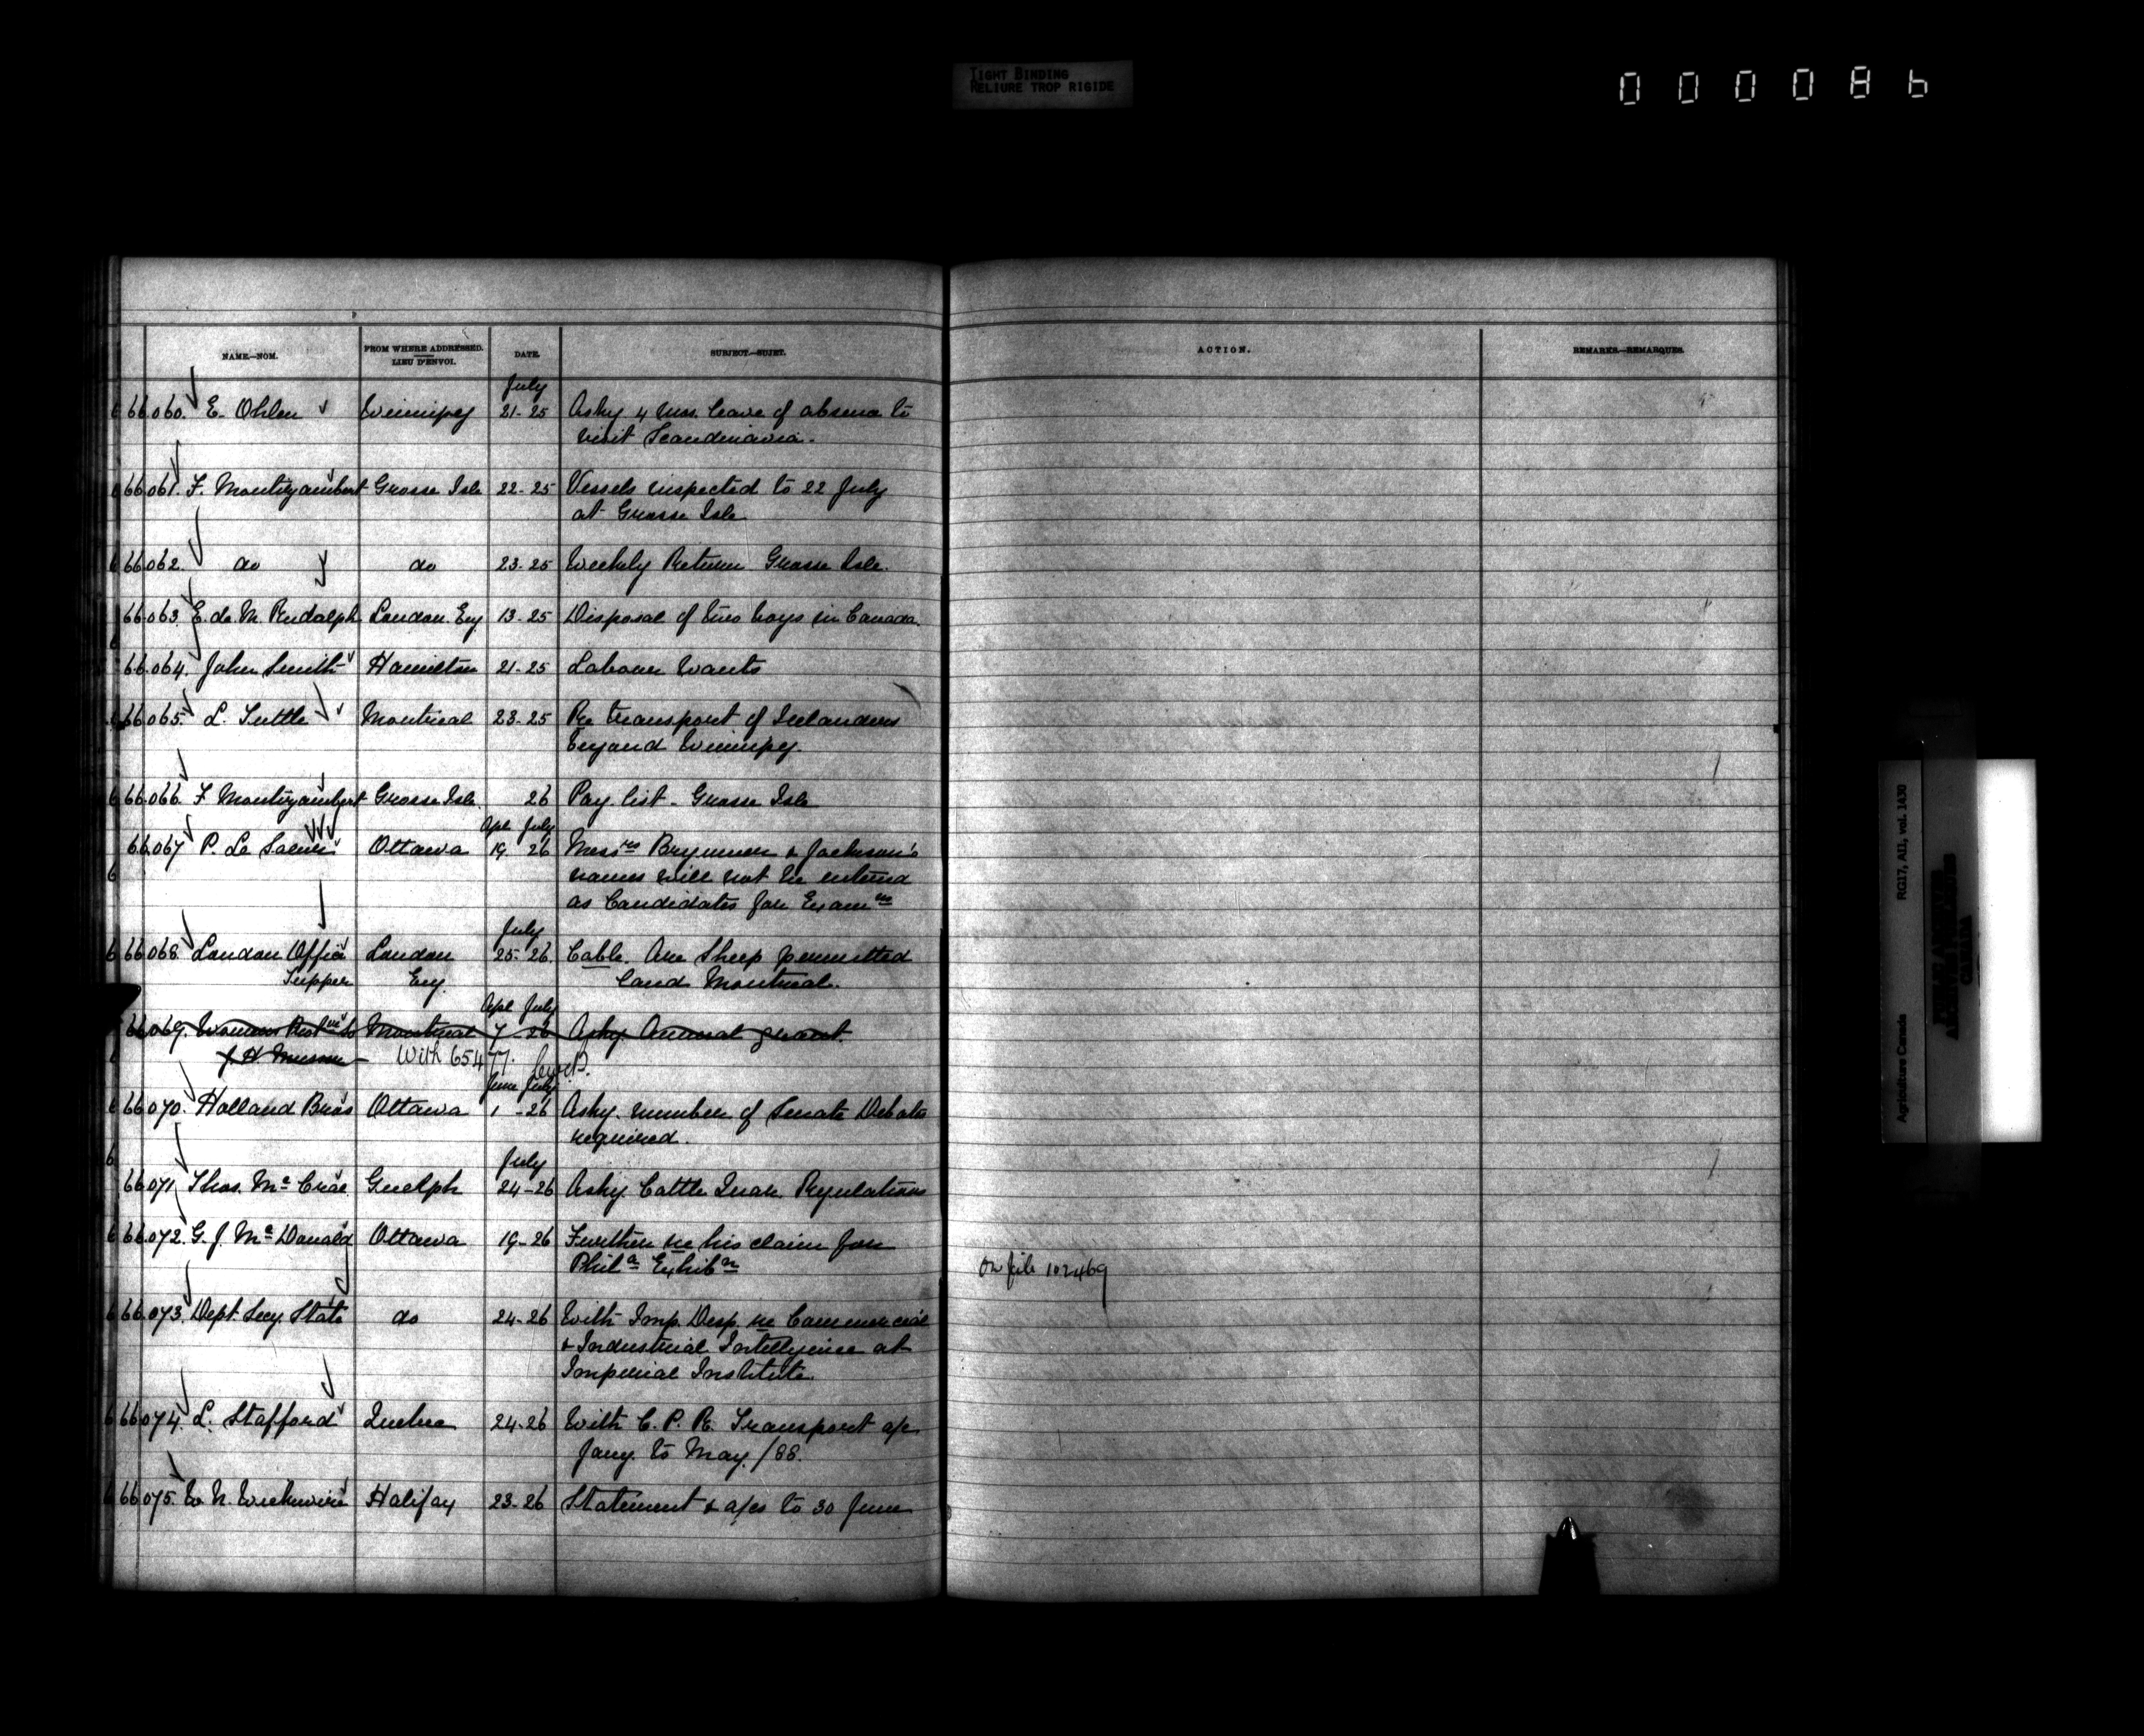 TIGHT BINDING
RELIURE TROP RIGIDE
000086
NAME.—NOM. FROM WHERE ADDRESSED. LIEU D'ENVOI. DATE. SUBJECT.—SUJET. ACTION. REMARKS.—REMARQUES.
July
66.060. E. Ohlen Winnipeg 21-25 Askg 4 mos. leave of absence to
visit Scandinavia.
66.061. F. Montizambert Grosse Isle 22-25 Vessels inspected to 22 July
at Grosse Isle
66.062. do do 23-25 Weekly Return Grosse Isle.
66.063. E. de M. Rudolph London. Eng 13-25 Disposal of two boys in Canada.
66.064. John Smith Hamilton 21-25 Labour Wants
66.065. L. Tuttle Montreal 23-25 Re transport of Icelanders
beyond Winnipeg.
66.066. F Montizambert Grosse Isle. 26 Pay list - Grosse Isle
Apl July
66.067 P. Le Sueur Ottawa 19 26 Messrs Brymner & Jackson's
names will not be entered
as Candidates for Examn
July
66.068 London Office London 25-26. Cable. Are Sheep permitted
Tupper Eng. land Montreal.
Apl July
66.069. Womens Montreal 7-26 Askg. Annual grant.
With 65477.
June July
66.070. Holland Bros Ottawa 1-26 Askg. number of Senate Debates
required.
July
66.071 Thos. Mc Crae Guelph 24-26 Askg Cattle Quar. Regulations
66.072. G. J. Mc Donald Ottawa 19-26 Further re his claim for
Phila Exhibn
On file 102469
66.073. Dept. Secy. State do 24-26 With Imp. Desp. re Commercial
& Industrial Intelligence at
Imperial Institute.
66.074. L. Stafford Quebec 24-26 With C. P. R. Transport a/c
Jany. to May. /88.
66.075. W. N. Wickwire Halifax 23-26 Statement & a/cs to 30 June
Agriculture Canada RG17, AII, vol. 1430